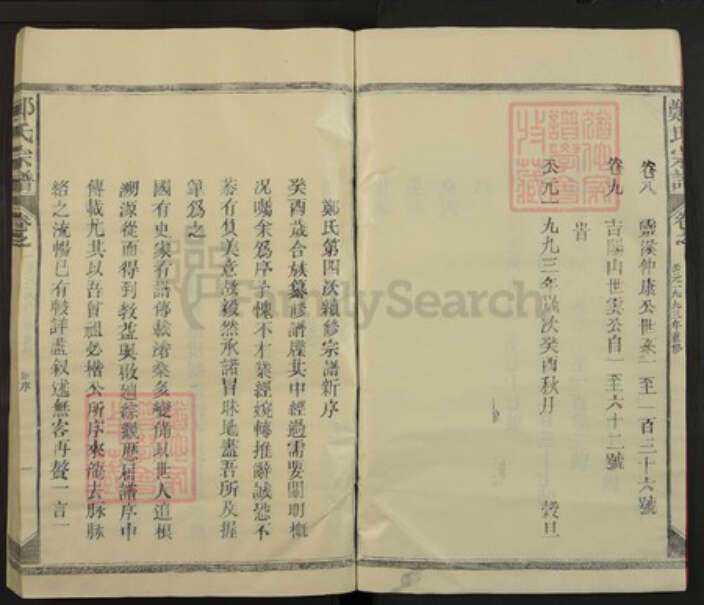 鄭氏宗譜
卷之
卷八 靈溪仲康公世系一至一百三十六號
卷九 吉陽山世雲公自一至六十二號
皆
公元一九九三年歲次癸酉秋月 穀旦
鄭氏第四次續修宗譜新序
癸酉歲合族纂修譜牒其中經過需要闡明概
況囑余為序予愧不才業經婉轉推辭誠恐不
恭有負美意故毅然承諾冒昧地盡吾所及握
筆為之
國有史家有譜傳載滄桑多變備以世人追根
溯源從而得到教益與收廻綜觀歷屆譜序中
傳載尤其以吾曾祖必楷公所序來龍去脉脉
絡之流暢已有較詳盡叙述無容再贅一言一
鄭氏宗譜
卷之
新序
一
FamilySearch